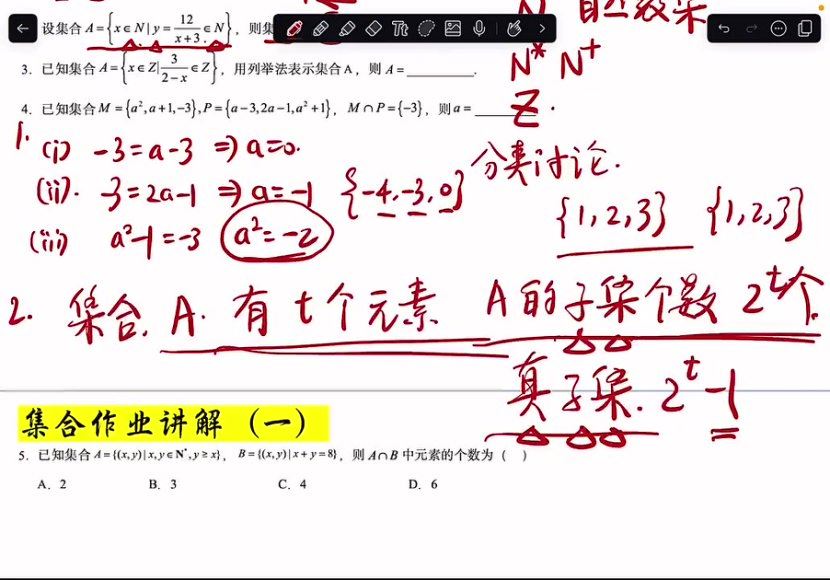 设集合 A={x∈N|y=12/(x+3)∈N}，则集
N
N* N⁺
3. 已知集合 A={x∈Z|3/(2-x)∈Z}，用列举法表示集合A，则 A=______.
4. 已知集合 M={a²,a+1,-3},P={a-3,2a-1,a²+1}，M∩P={-3}，则 a=______
Z.
1.
(i) -3=a-3 ⇒ a=0.
分类讨论.
(ii). -3=2a-1 ⇒ a=-1 {-4,-3,0}
{1,2,3} {1,2,3}
(iii) a²-1=-3 a²=-2
2. 集合. A. 有 t个元素 A的子集个数 2ᵗ个
真子集. 2ᵗ-1
集合作业讲解（一）
5. 已知集合 A={(x,y)|x,y∈N*,y≥x}，B={(x,y)|x+y=8}，则 A∩B 中元素的个数为（ ）
A. 2 B. 3 C. 4 D. 6